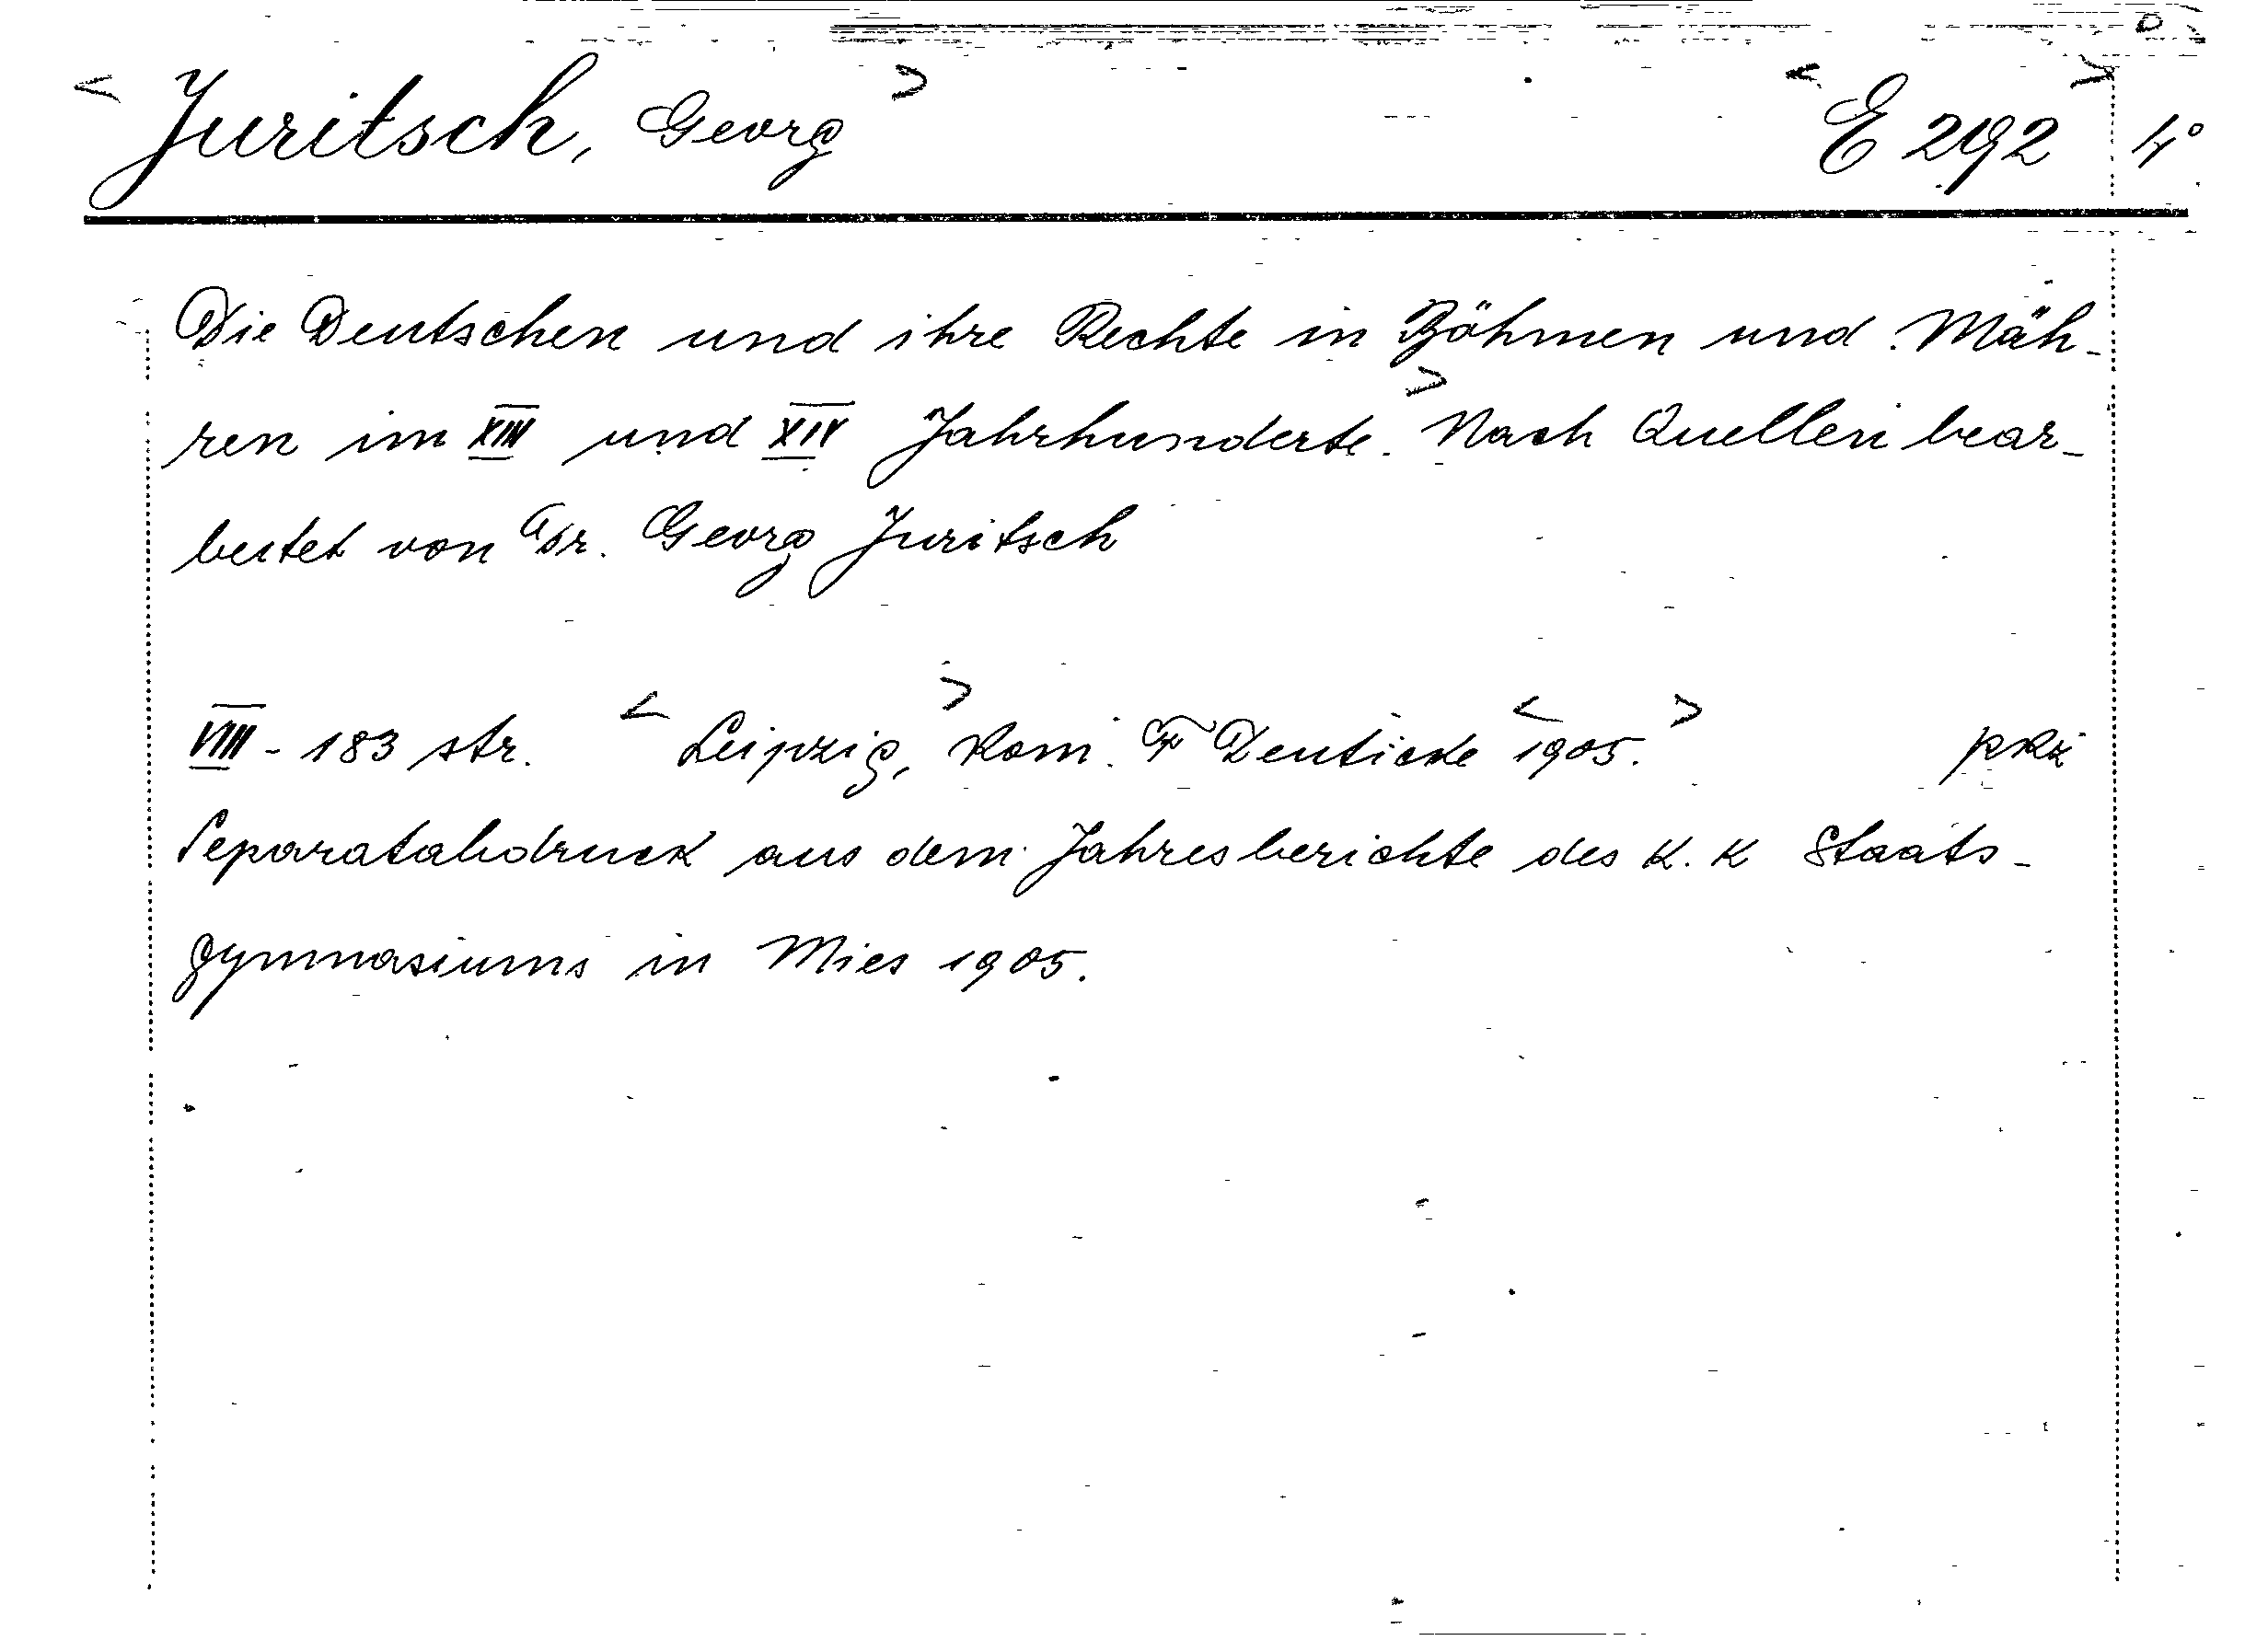 < Juritsch, Georg > < E 292 > 4°
Die Deutschen und ihre Rechte in Böhmen und Mäh-
ren im XIII und XIV Jahrhunderte. > Nach Quellen bear-
beitet von Dr. Georg Juritsch
VIII - 183 str. < Leipzig, > Kom. F Deuticke < 1905. > pkž
Separatabdruck aus dem Jahresberichte des K. K Staats-
gymnasiums in Mies 1905.